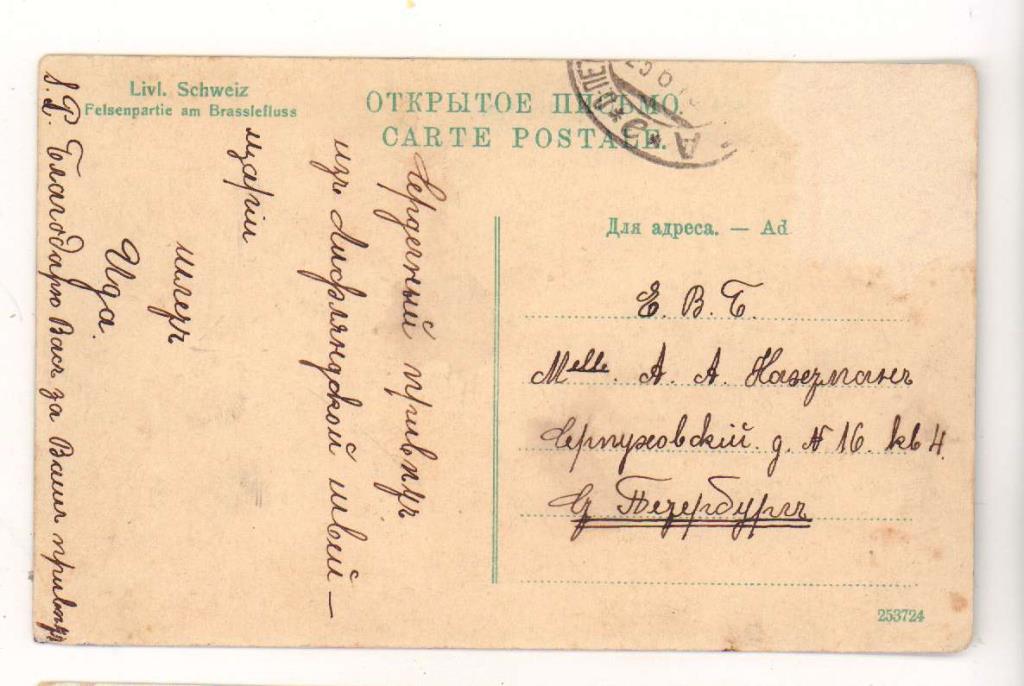 Livl. Schweiz
Felsenpartie am Brasslefluss
ОТКРЫТОЕ ПИСЬМО.
CARTE POSTALE.
Для адреса. — Ad
Е. В. Б.
Melle. А. А. Нахтманъ
Серпуховскій д. № 16. кв 4.
С Петербургъ
253724
Сердечный привѣтъ
изъ Лифляндской швей-
царіи
шлетъ
Ида.
S. P. Благодарю Васъ за Вашъ привѣтъ